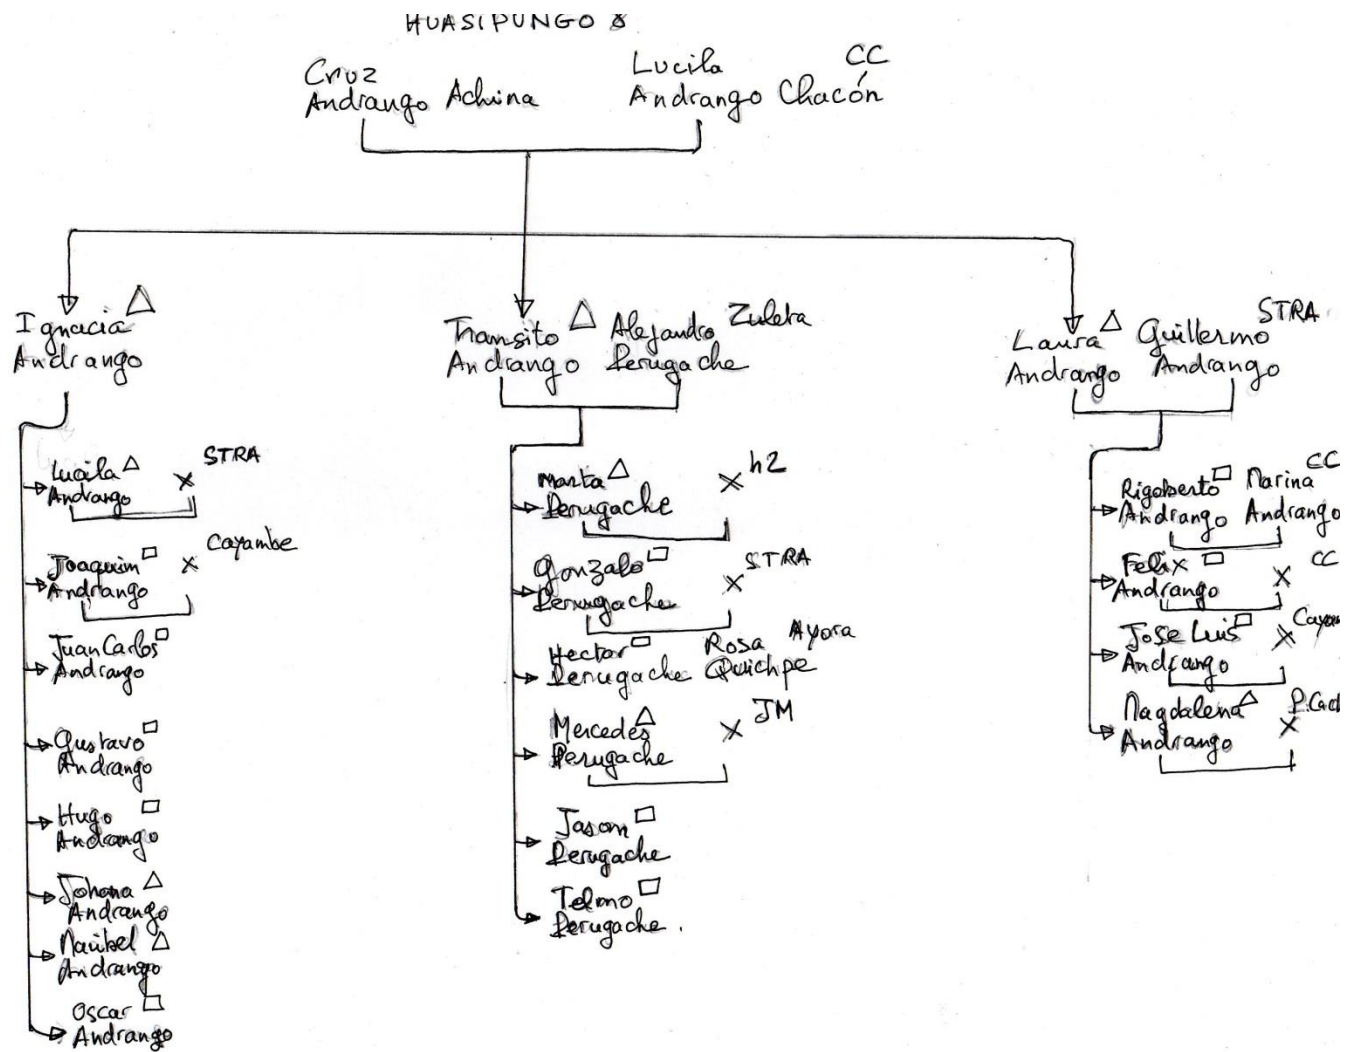 HUASIPUNGO 8
Cruz
Andrango Achina
Lucila CC
Andrango Chacón
Ignacia
Andrango
Transito
Andrango
Alejandro Zuleta
Perugache
Laura
Andrango
Guillermo STRA
Andrango
Lucila
Andrango
X STRA
Joaquim
Andrango
X Cayambe
Juan Carlos
Andrango
Gustavo
Andrango
Hugo
Andrango
Johana
Andrango
Maribel
Andrango
Oscar
Andrango
Marta
Perugache
X h2
Gonzalo
Perugache
X STRA
Hector
Perugache
Rosa Ayora
Quichpe
Mercedes
Perugache
X JM
Jason
Perugache
Telmo
Perugache.
Rigoberto
Andrango
Marina CC
Andrango
Felix
Andrango
X CC
Jose Luis
Andrango
X Cayam
Magdalena
Andrango
X